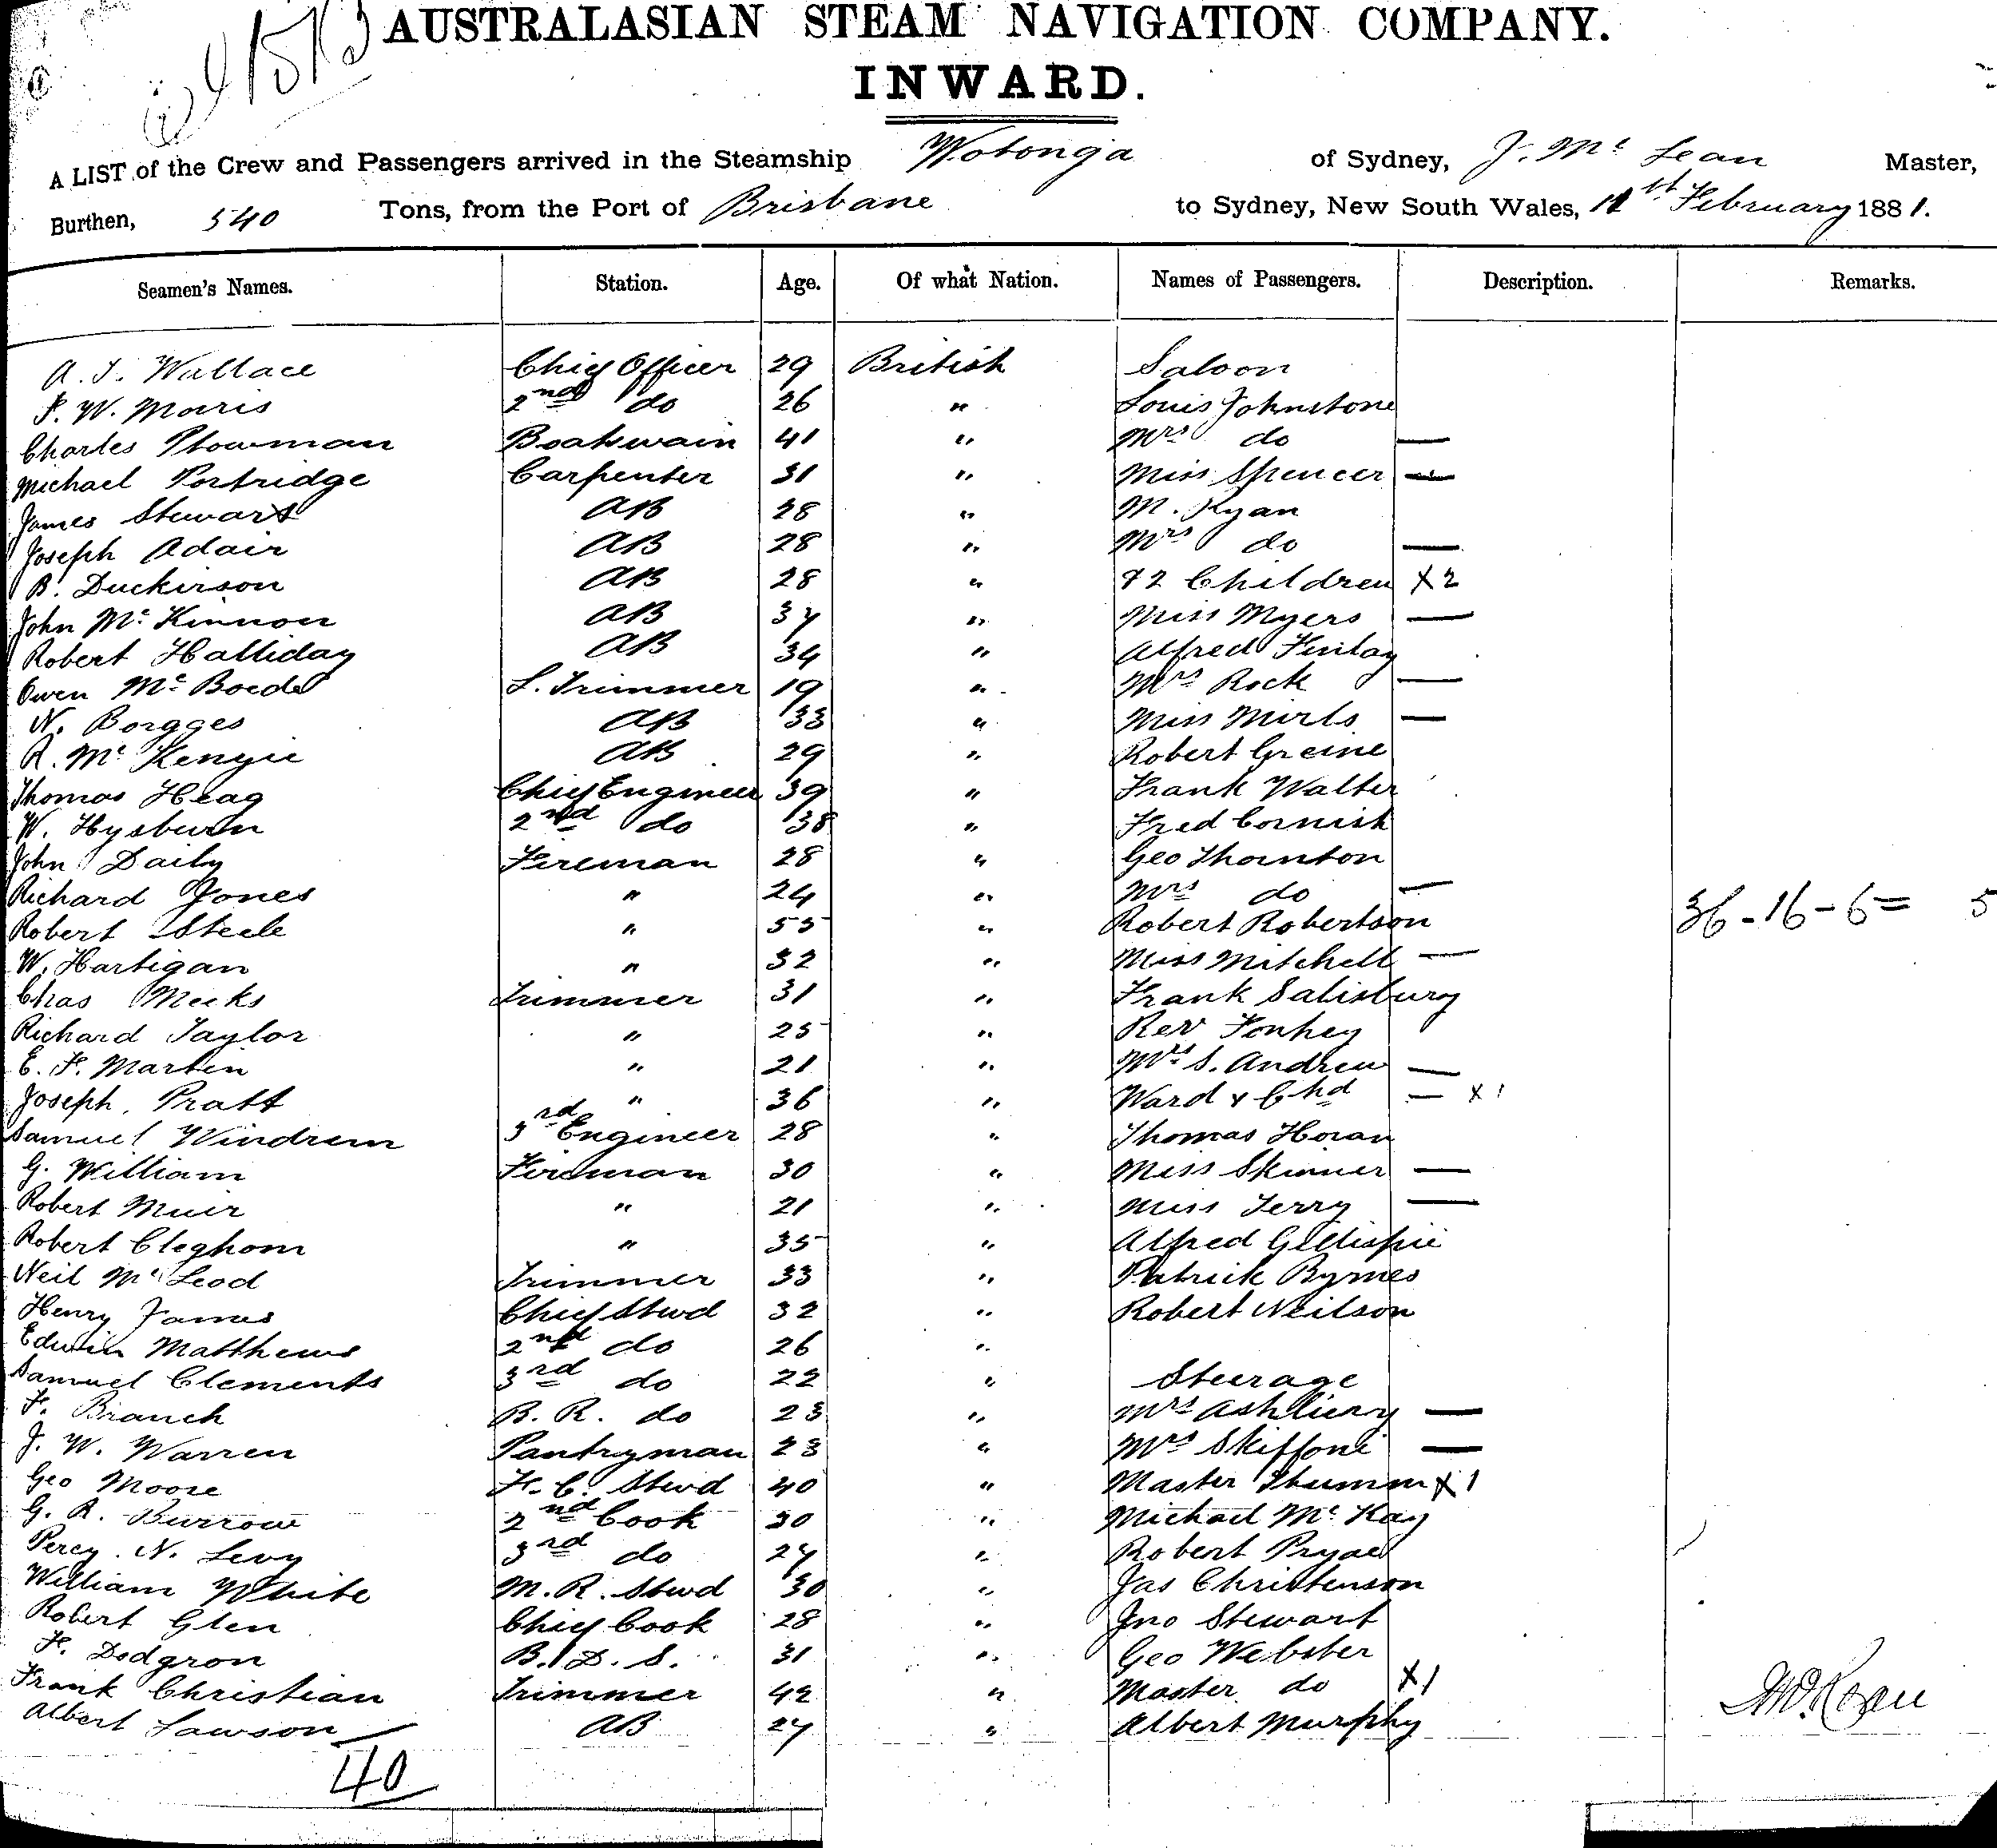 AUSTRALASIAN STEAM NAVIGATION COMPANY.
INWARD.
A LIST of the Crew and Passengers arrived in the Steamship Wotonga of Sydney, J. Mc Lean Master,
Burthen, 540 Tons, from the Port of Brisbane to Sydney, New South Wales, February 1881.
Seamen's Names. Station. Age. Of what Nation. Names of Passengers. Description. Remarks.
A. J. Wallace Chief Officer 29 British Saloon
F. W. Morris 2nd do 26 " Louis Johnstone
Charles Plowman Boatswain 41 " Mrs do —
Michael Portridge Carpenter 31 " Miss Spencer —
James Stewart AB 28 " M. Ryan
Joseph Adair AB 28 " Mrs do —
B. Duckerson AB 28 " & 2 Children X2
John Mc Kinnon AB 37 " Miss Myers —
Robert Halliday AB 34 " Alfred Finlay
Owen Mc L. Trimmer 19 " Mrs Rock —
N. Borgges AB 33 " Miss —
R. Mc Kenzie AB 29 " Robert Greine
Thomas Heag Chief Engineer 39 " Frank Walter
W. Hysburn 2nd do 38 " Fred Cornish
John Daily Fireman 28 " Geo Thornton
Richard Jones " 24 " Mrs do —
Robert Steele " 55 " Robert Robertson 36 - 16 - 6 = 5
W. Hartigan " 32 " Miss Mitchell —
Chas Meeks Trimmer 31 " Frank Salisbury
Richard Taylor " 25 " Rev
E. F. Martin " 21 " Mrs S. Andrew —
Joseph Pratt " 36 " Ward & Chd — X1
Samuel Windrem 3rd Engineer 28 " Thomas Horan
G. William Fireman 30 " Miss Skinner —
Robert Muir " 21 " Miss Terry —
Robert Cleghorn " 35 " Alfred Gillispie
Neil Mc Leod Trimmer 33 " Patrick Byrnes
Henry James Chief Stwd 32 " Robert Neilson
Edwin Matthews 2nd do 26 "
Samuel Clements 3rd do 22 " Steerage
F. Branch B. R. do 23 " Mrs —
J. W. Warren Pantryman 23 " Mrs Skiffone —
Geo Moore F. C. Stwd 40 " Master X1
G. R. Burrow 2nd Cook 30 " Michael Mc Kay
Percy N. Levy 3rd do 27 " Robert
William White M. R. Stwd 30 " Jas Christenson
Robert Glen Chief Cook 28 " Jno Stewart
F. Dodgron B. D. S. 31 " Geo Webster
Frank Christian Trimmer 42 " Master do X1
Albert Lawson AB 27 " Albert Murphy
40